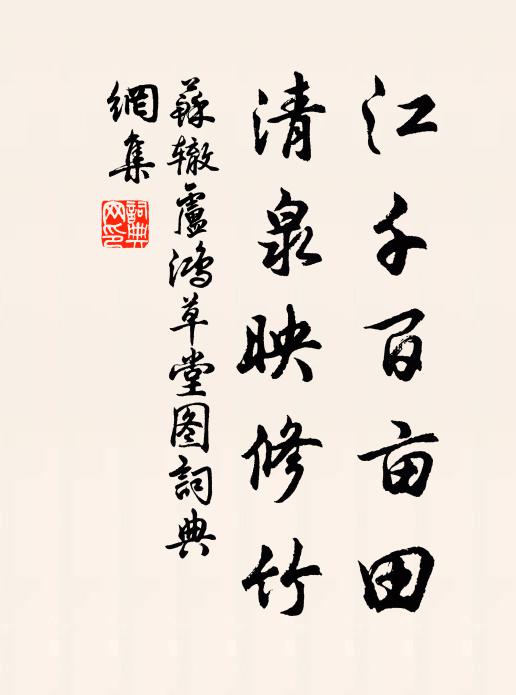 江千百亩田
清泉映修竹
蘇辙盧鴻草堂图詞典
網集
詞典
网印